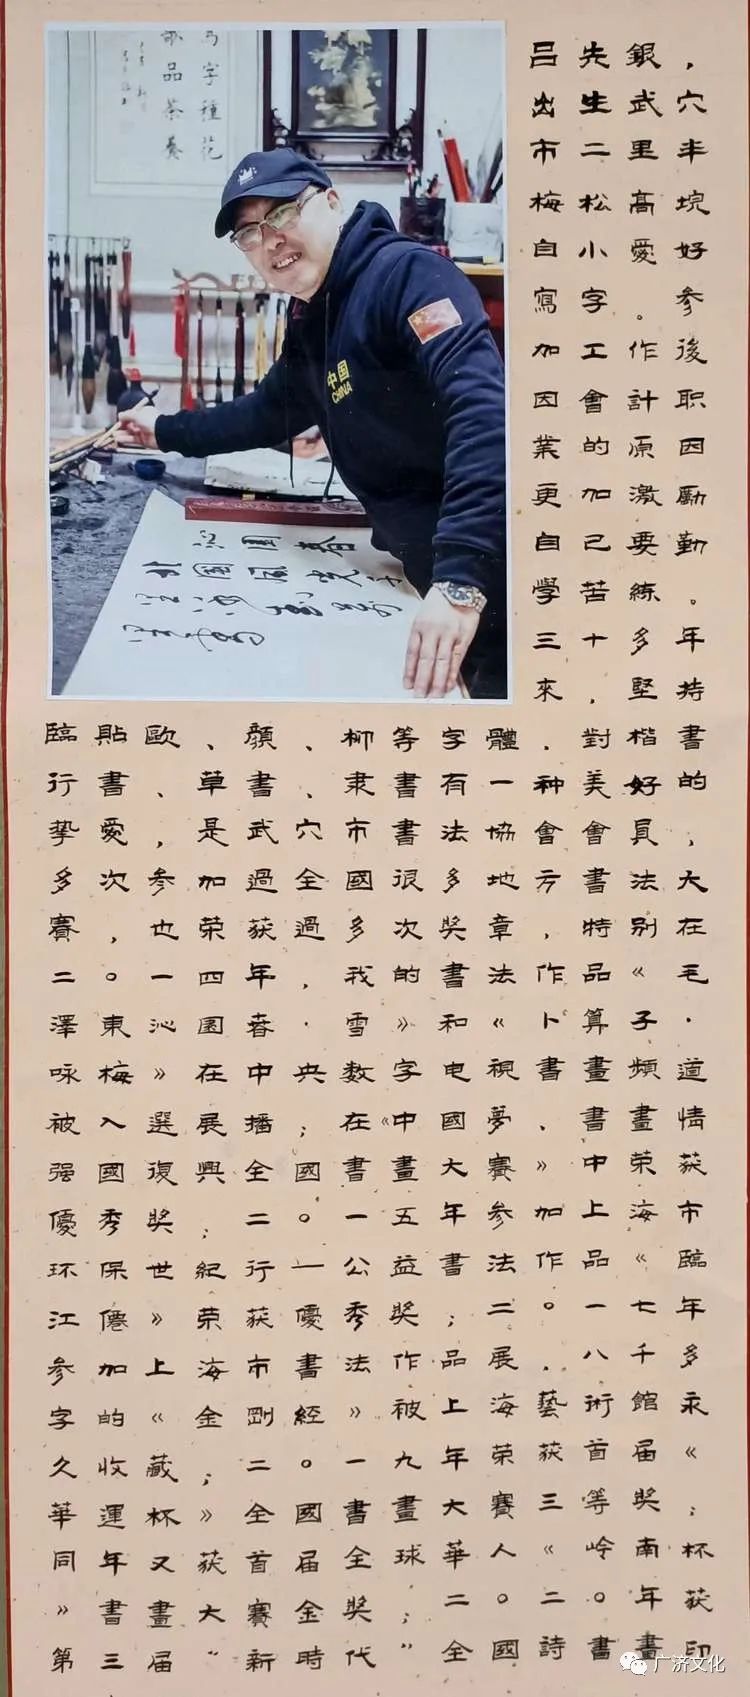 吕先銀，
出生武穴
市二里半
梅松高垸
自小愛好
寫字。参
加工作後
因會計职
業的原因
更加激励
自己要勤
學苦練。
三十多年
來，堅持
臨貼歐、顔、柳等字體，對楷書
行書、草書、隶書有一种美好的
挚愛，是武穴市書法協會會員，
多次参加過全國很多地方書法大
賽，也荣获過多次奖章，特别在
二。一四年，我的書法作品《毛
澤東沁园春·雪》和《卜算子·
咏梅》在中央数字电視書畫頻道
被入選展播；在《中國夢、書畫情
强國復興全國書畫大賽》中荣获
優秀奖；二。一五年参加上海市
环保世紀行一公益書法作品《臨
江僊》荣获優秀奖；二。一七年
参加上海市書法作品展，八千多
字的《金剛經》被上海藝術館永
久收藏；二。一九年荣获首届《
華運杯》全國書畫大賽三等奖；
同年又获首届全球華人《岭南杯
》書畫大賽金奖；二。二。年获
第三届"新時代"全國詩書畫印
中国
CHINA
沁園春
北國風光千
广济文化